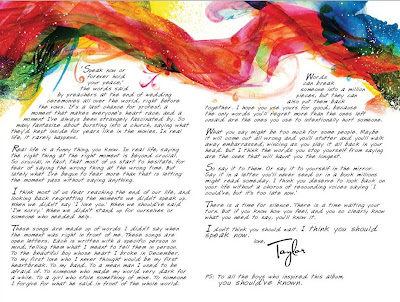 "Speak now or
forever hold
your peace,"
the words said
by preachers at the end of wedding
ceremonies all over the world, right before
the vows. It's a last chance for protest, a
moment that makes everyone's heart race, and a
moment I've always been strangely fascinated by. So
many fantasize about bursting into a church, saying what
they'd kept inside for years like in the movies. In real
life, it rarely happens.
Real life is a funny thing, you know. In real life, saying
the right thing at the right moment is beyond crucial.
So crucial, in fact, that most of us start to hesitate, for
fear of saying the wrong thing at the wrong time. But
lately what I've begun to fear more than that is letting
the moment pass without saying anything.
I think most of us fear reaching the end of our life, and
looking back regretting the moments we didn't speak up.
When we didn't say 'I love you.' When we should've said
'I'm sorry.' When we didn't stand up for ourselves or
someone who needed help.
These songs are made up of words I didn't say when
the moment was right in front of me. These songs are
open letters. Each is written with a specific person in
mind, telling them what I meant to tell them in person.
To the beautiful boy whose heart I broke in December.
To my first love who I never thought would be my first
heartbreak. To my band. To a mean man I used to be
afraid of. To someone who made my world very dark for
a while. To a girl who stole something of mine. To someone
I forgive for what he said in front of the whole world.
Words
can break
someone into a million
pieces, but they can
also put them back
together. I hope you use yours for good, because
the only words you'll regret more than the ones left
unsaid are the ones you use to intentionally hurt someone.
What you say might be too much for some people. Maybe
it will come out all wrong and you'll stutter and you'll walk
away embarrassed, wincing as you play it all back in your
head. But I think the words you stop yourself from saying
are the ones that will haunt you the longest.
So say it to them. Or say it to yourself in the mirror.
Say it in a letter you'll never send or in a book millions
might read someday. I think you deserve to look back on
your life without a chorus of resounding voices saying 'I
could've, but it's too late now.'
There is a time for silence. There is a time waiting your
turn. But if you know how you feel, and you so clearly know
what you need to say, you'll know it.
I don't think you should wait. I think you should
speak now.
love,
Taylor
P.S. To all the boys who inspired this album,
you should've known.